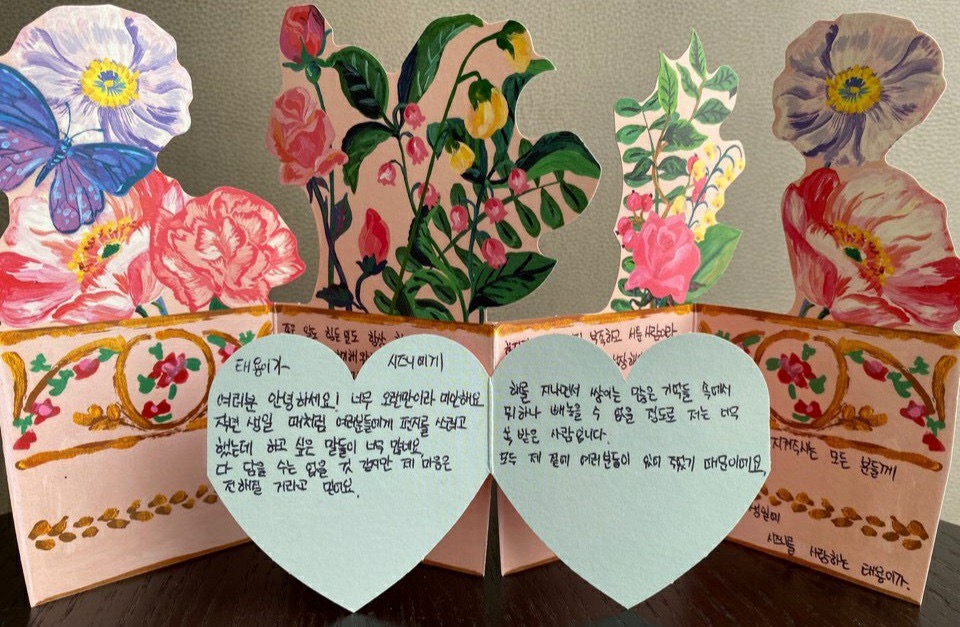 태용이가
시즈니에게
여러분 안녕하세요! 너무 오랜만이라 미안해요
작년 생일 때처럼 여러분들에게 편지를 쓰려고
했는데 하고 싶은 말들이 너무 많네요.
다 담을 수는 없을 것 같지만 제 마음은
전해질 거라고 믿어요.
해를 지나면서 쌓이는 많은 기억들 속에서
뭐하나 빼놓을 수 없을 정도로 저는 너무
복 받은 사람입니다.
모두 제 곁에 여러분들이 있어 줬기 때문이에요.
힘든 일도 항상
부족하고 서툰 사람이라
지켜주시는 모든 분들께
시즈니를 사랑하는 태용이가.